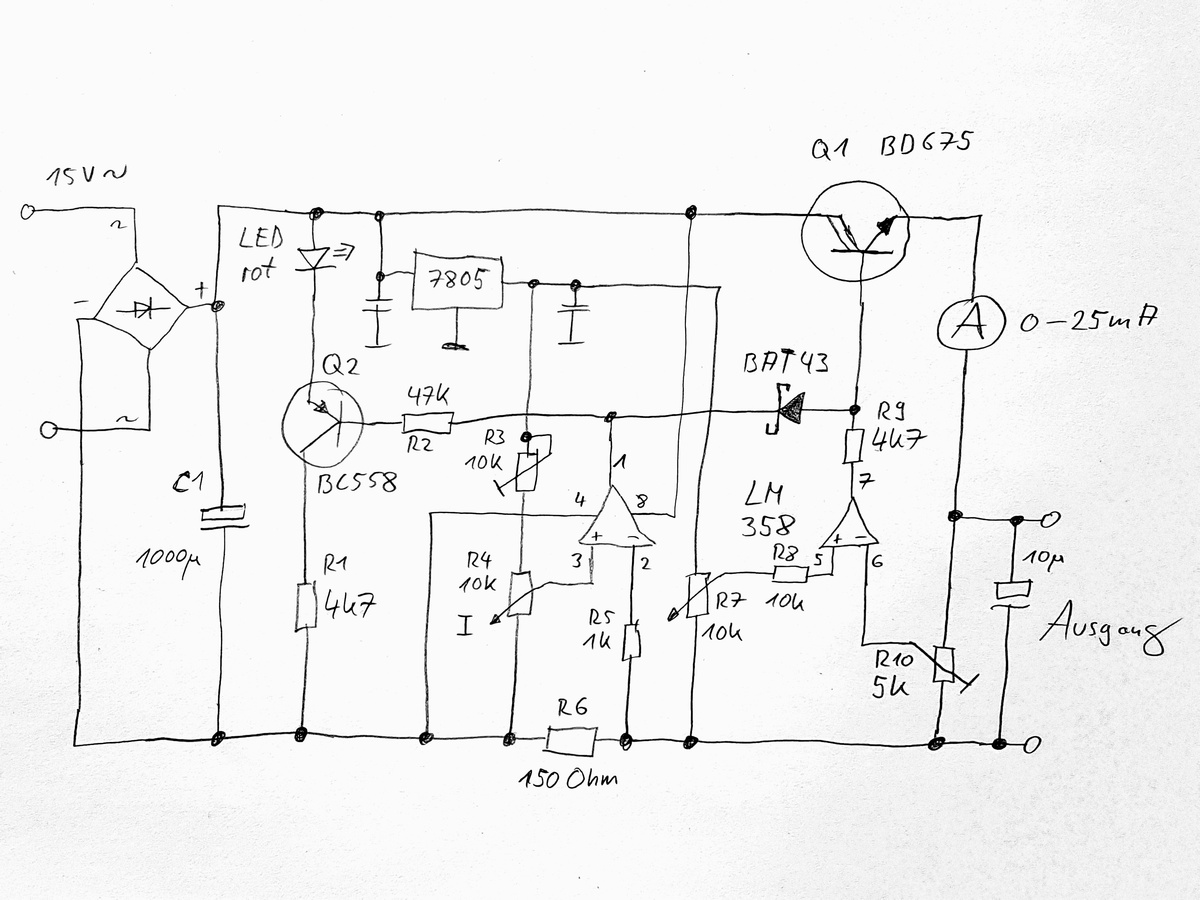 15V~
~
-
+
~
C1
1000µ
LED
rot
7805
Q2
BC558
R1
4k7
47K
R2
R3
10K
R4
10K
I
4
8
1
+
-
3
2
R5
1K
R6
150 Ohm
BAT43
LM
358
R7
10k
R8
10k
R9
4k7
7
+
-
5
6
R10
5k
Q1 BD675
A
0-25mA
10µ
Ausgang